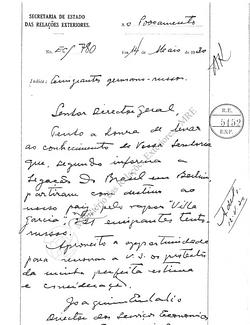 SECRETARIA DE ESTADO
DAS RELAÇÕES EXTERIORES.
Ao Povoamento
No. EC/ 780
Em 14 de Maio de 1930
Indice: Emigrantes germano-russos.
Senhor Director Geral,
Tenho a honra de levar
ao conhecimento de Vossa Senhoria
que, segundo informa a
Legação do Brasil em Berlim
partiram com destino ao
nosso paiz pelo vapor "Villa
Garcia", emigrantes teuto-
russos.
Aproveito a opportunidade
para renovar a V.S. os protestos
da minha perfeita estima
e consideração.
Joaquim Eulalio
Director dos Serviços Economicos
R.E.
5452
E.N.P.